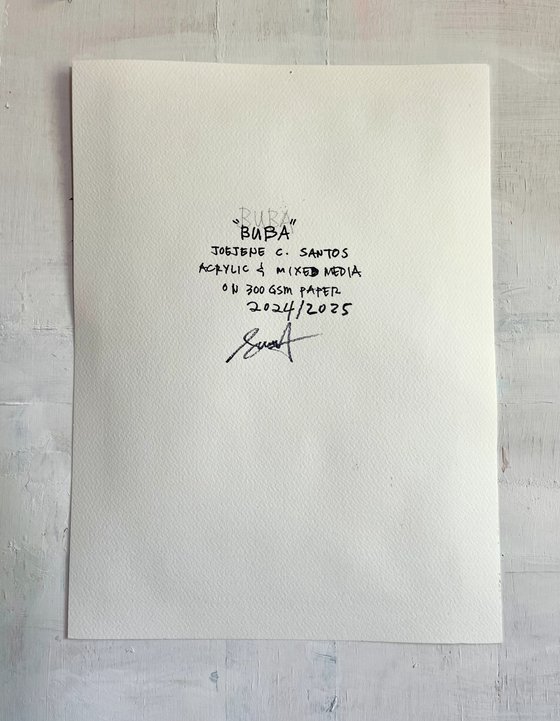 BUBA
"BUBA"
JOEJENE C. SANTOS
ACRYLIC & MIXED MEDIA
ON 300 GSM PAPER
2024/2025